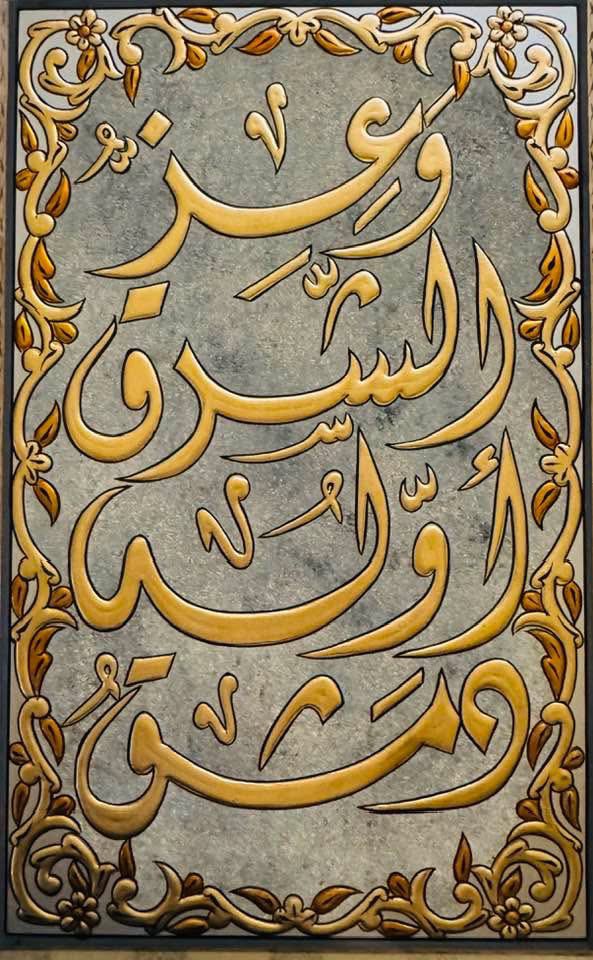 وَعِزُّ
الشَّرقِ
أوَّلُهُ
دمشقُ